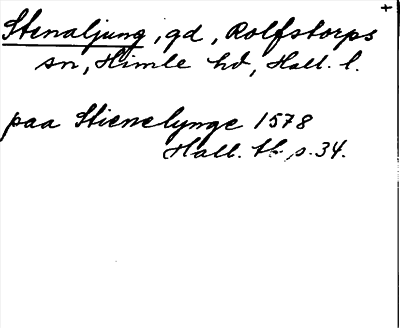 +
Stenaljung, gd, Rolfstorps
sn, Himle hd, Hall. l.
paa Stienelynge 1578
Hall. tb p. 34.